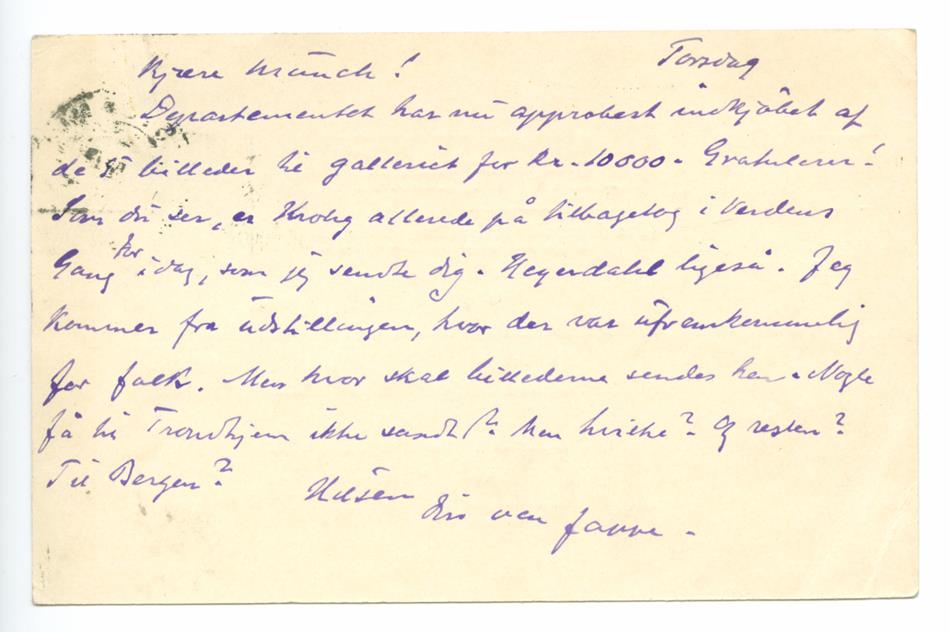 Torsdag
Kjære Munch!
Departementet har nu approbert indkjøbet af
de 5 billeder til galleriet for kr. 10000. Gratulerer!
Som du ser, er Krohg allerede på tilbagetog i Verdens
Gang for idag, som jeg sendte dig. Heyerdahl ligeså. Jeg
kommer fra udstillingen, hvor der var ufremkommelig
for folk. Men hvor skal billederne sendes hen. Nogle
få til Trondhjem ikke sandt? Men hvilke? Og resten?
Til Bergen?
Hilsen
din ven Jappe.